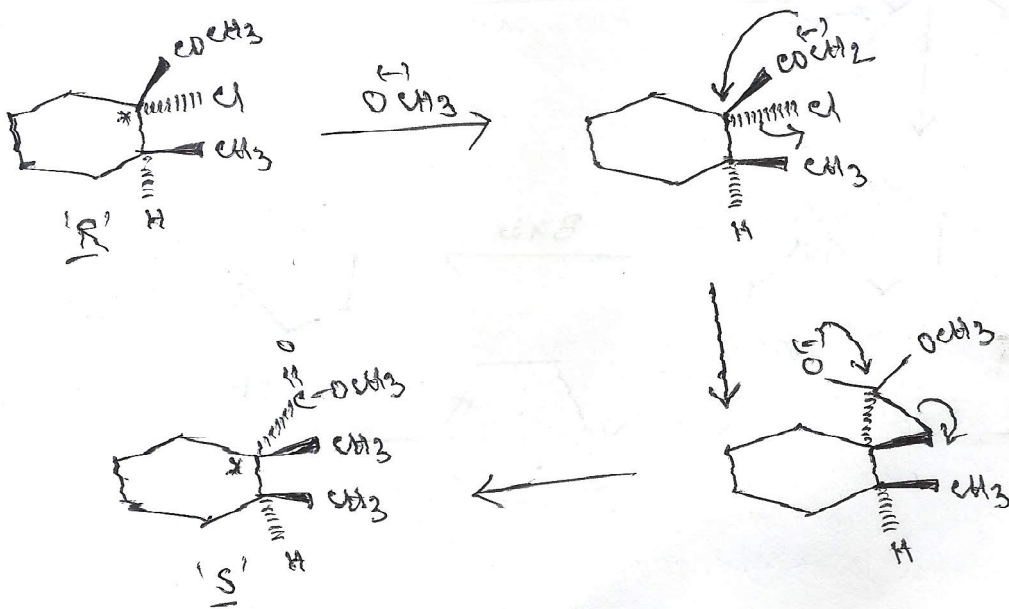 COCH3
Cl
*
CH3
H
'R'
(-)
OCH3
(-)
COCH2
Cl
CH3
H
(-)
O
OCH3
CH3
H
O
C-OCH3
CH3
*
CH3
H
'S'